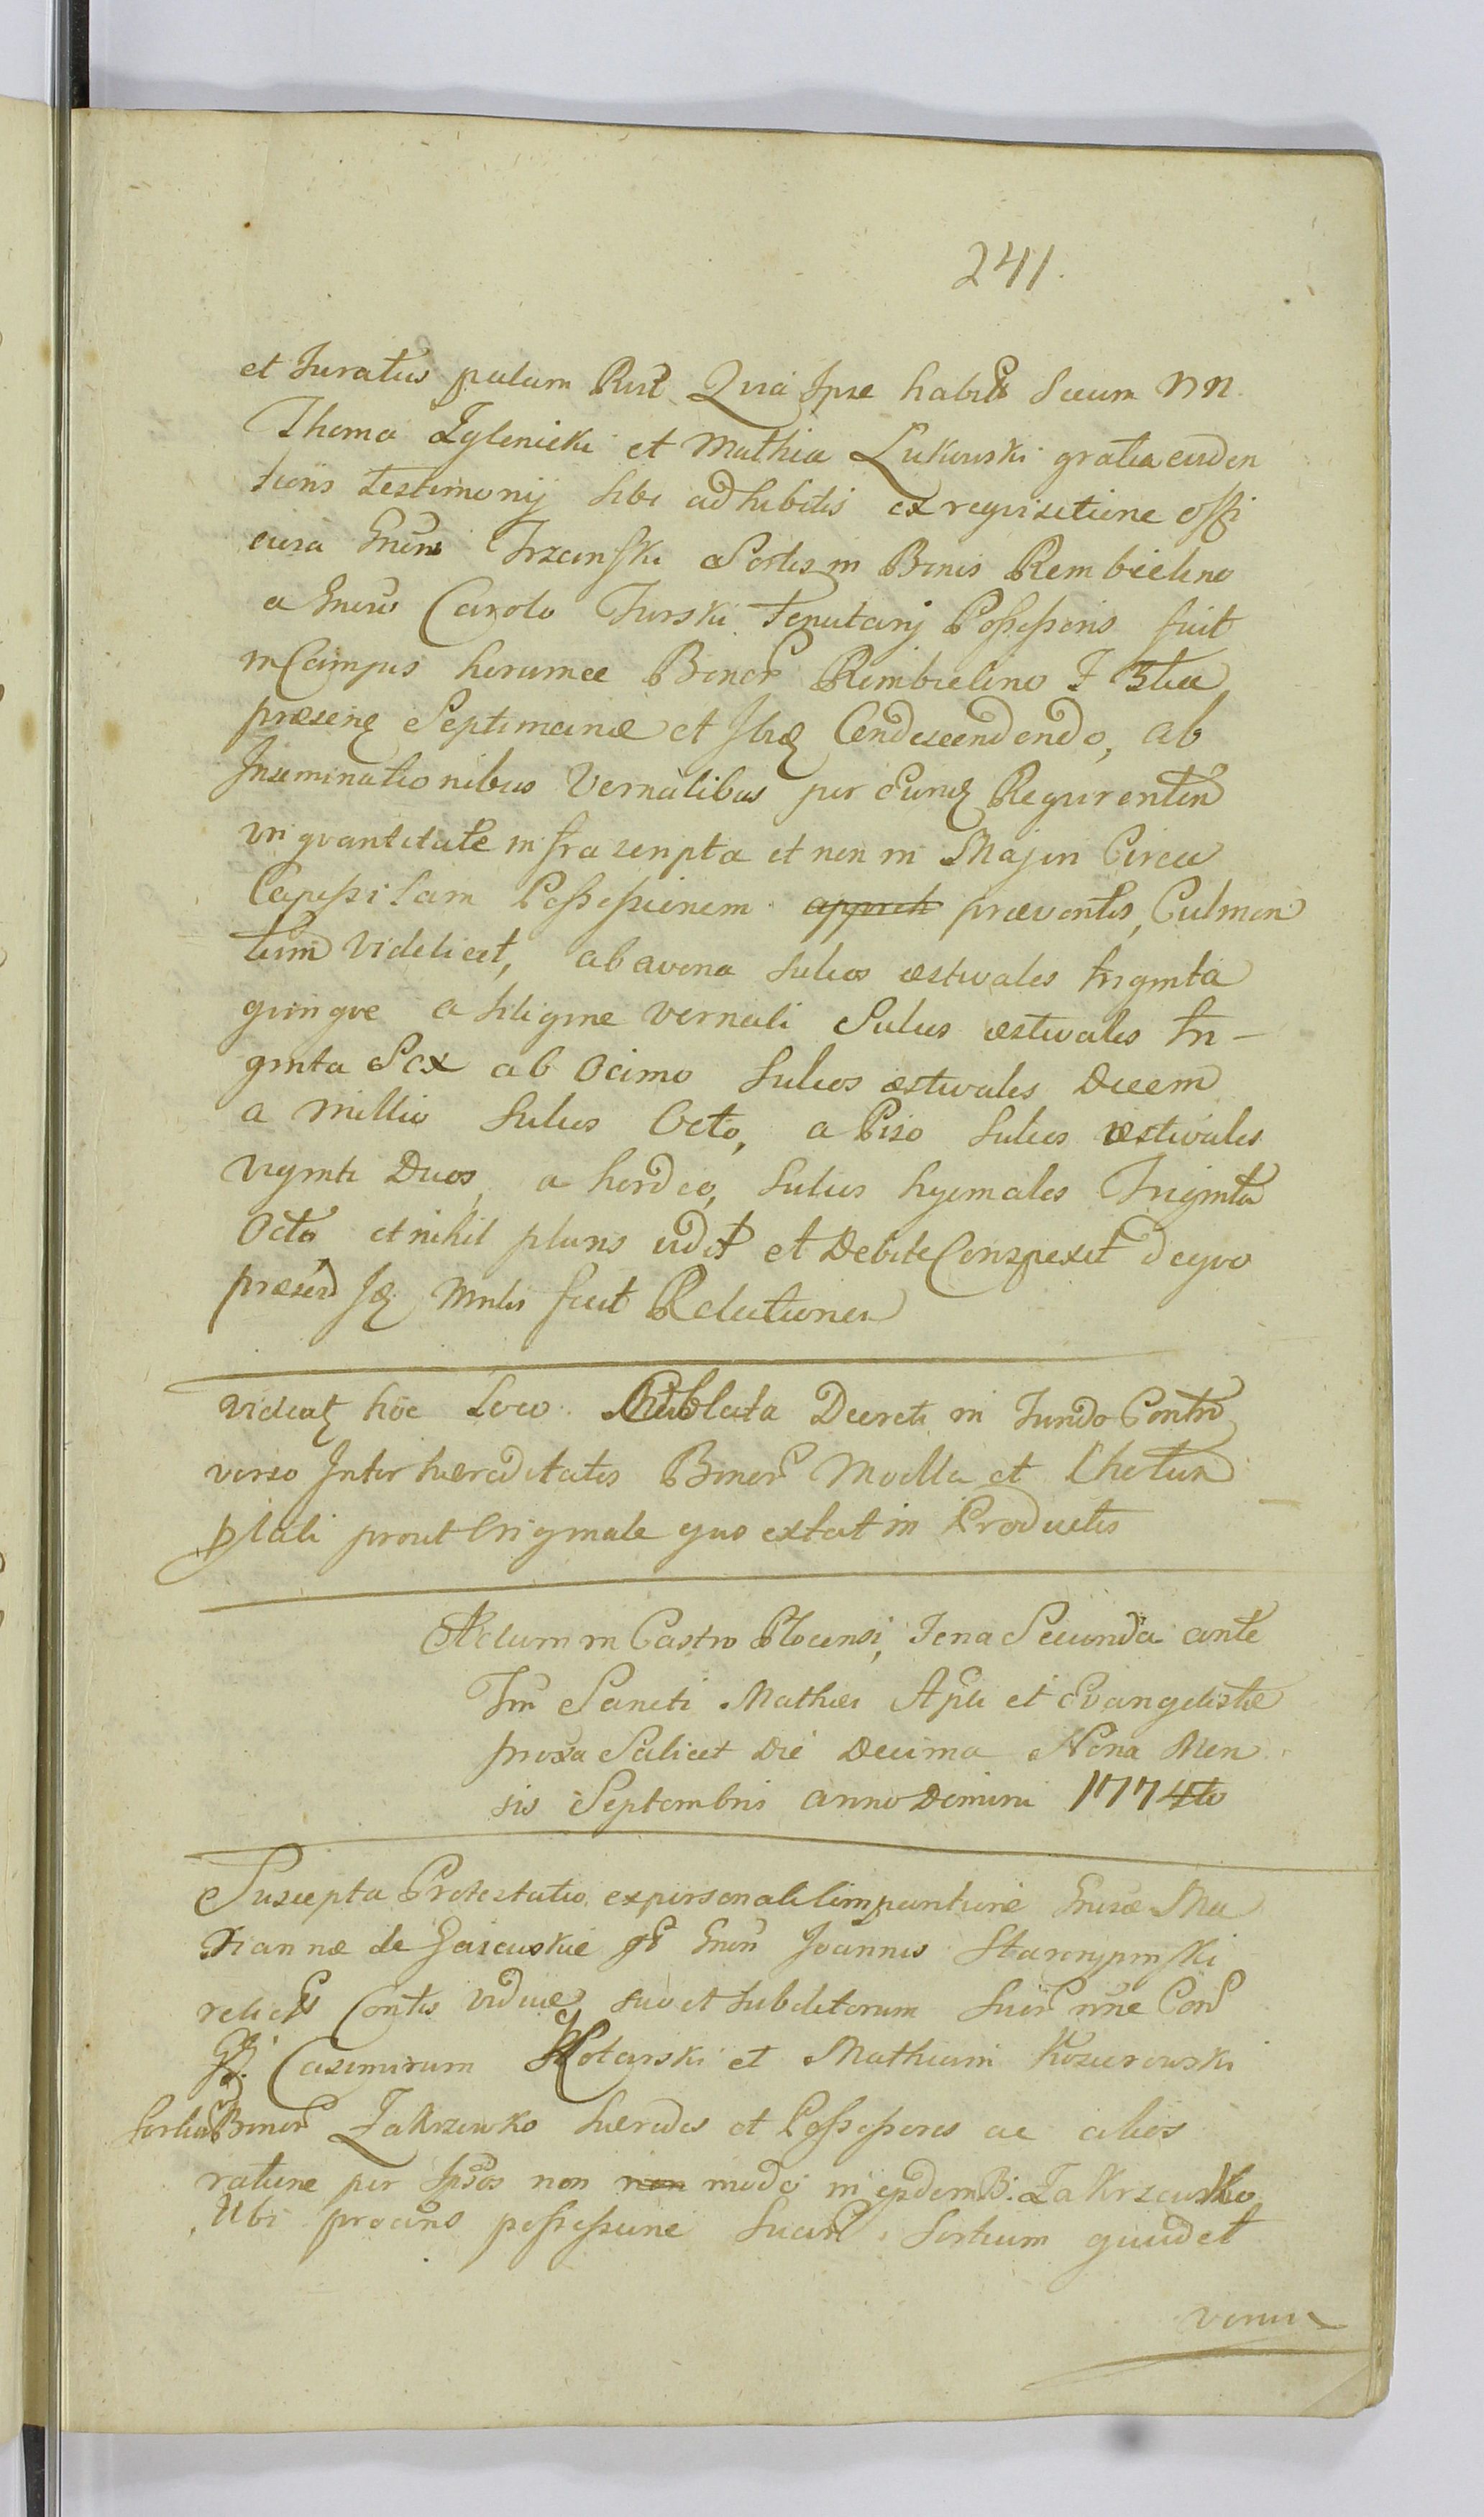 241.
et Juratus palam Rlt Quia Ipse habitis secum NN.
Thoma Zglenicki et Mathia Lukowski gratia eviden
tioris testimonij sibi adhibitis ex requisitione offi
ciosa Gnsi Trzcinski Sortis in Bonis Rembielino
a Gnoso Carolo Turski Tenutarij Possessoris fuit
in Campis horumce Bonor Rembielino F 3tia
praesenѕ Septimanae et Ibq Condescendendo, ab
Inseminationibus Vernalibus per Eumq Requirentem
in quantitate infrascripta et non in Majori Circa
Capessitam Possessionem appreh praeventis, Culmen
tum videlicet, ab avena sulcos aestivales triginta
quinque a siligine vernali Sulcos aestivales tri-
ginta Sex ab Ocimo Sulcos aestivales Decem
a millio Sulcos Octo, a Piso Sulcos aestivales
viginti Duos, a hordeo, Sulcos hyemales Triginta
Octo et nihil pluris vidit et Debite Conspexit de quo
praesens Mnlis fecit Relationem
Videatq hoc Loco Oblata Decreti in Fundo Contro
verso Inter haereditates Bonor Modla et Chotum
plati prout Originale ejus extat in Productis
Actum in Castro Plocensi, Feria Secunda ante
Fm Sancti Mathaei Apli et Evangelistae
proxa Scilicet Die Decima Nona Men
sis Septembris anno Domini 1774to
Suscepta Protestatio ex personali Comparitione Gnsae Ma
riannae de Gaiewskie Gnsi Joannis Starorypinski
relictae Contis viduae suo et subditorum Suor nne Con
GG. Casimirum Kotarski et Mathiam Kozurowski
Sortium Bonor Zakrzewko haeredes et Possessores ac alios
ratione per Ipsos non non modo in ejsdem B. Zakrzewko
Ubi procans possessione Suar Sortium gaudet
verum